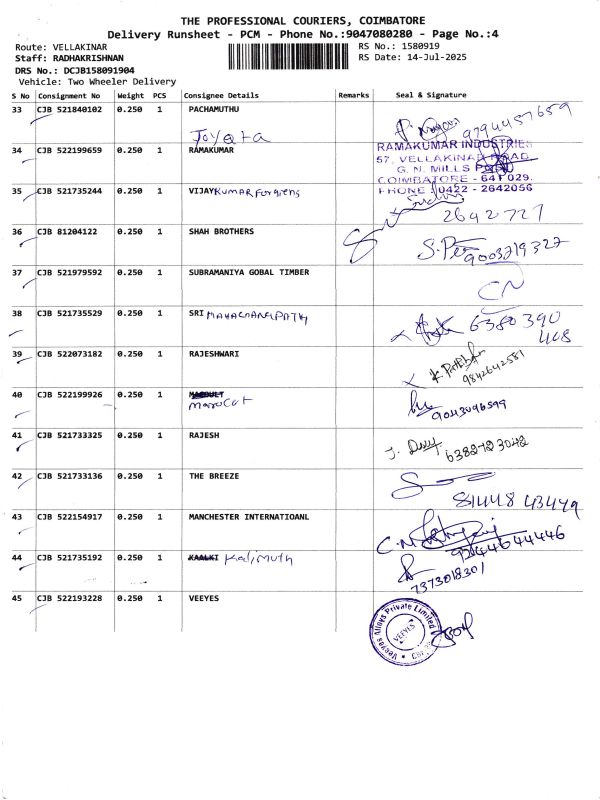 THE PROFESSIONAL COURIERS, COIMBATORE
Delivery Runsheet - PCM - Phone No.:9047080280 - Page No.:4
Route: VELLAKINAR RS No.: 1580919
Staff: RADHAKRISHNAN RS Date: 14-Jul-2025
DRS No.: DCJB158091904
Vehicle: Two Wheeler Delivery
S No Consignment No Weight PCS Consignee Details Remarks Seal & Signature
33 CJB 521840102 0.250 1 PACHAMUTHU 9794457659
34 CJB 522199659 0.250 1 RAMAKUMAR
RAMAKUMAR INDUSTRIES
57, VELLAKINAR ROAD
G. N. MILLS POST
COIMBATORE - 641 029.
PHONE : 0422 - 2642056
35 CJB 521735244 0.250 1 VIJAYKUMAR Forgiens
2692727
36 CJB 81204122 0.250 1 SHAH BROTHERS
9003719327
37 CJB 521979592 0.250 1 SUBRAMANIYA GOBAL TIMBER
CN
38 CJB 521735529 0.250 1 SRI MAHAGANAPATHY 6380390
408
39 CJB 522073182 0.250 1 RAJESHWARI
9842642581
40 CJB 522199926 0.250 1
9043096599
41 CJB 521733325 0.250 1 RAJESH
6382723042
42 CJB 521733136 0.250 1 THE BREEZE
8144843449
43 CJB 522154917 0.250 1 MANCHESTER INTERNATIOANL
9244644446
44 CJB 521735192 0.250 1 KAALKI Kalimuth
7373018301
45 CJB 522193228 0.250 1 VEEYES
Veeyes Alloys Private Limited
VEEYES